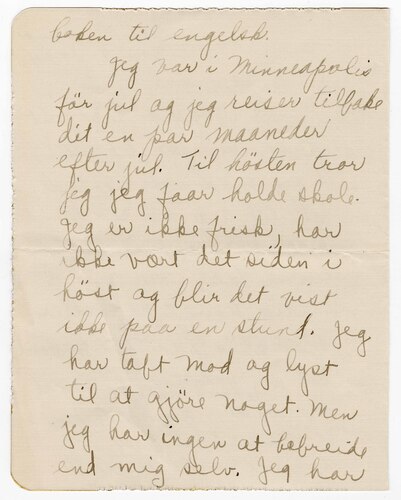 boken til engelsk.
Jeg var i Minneapolis
för jul og jeg reiser tilbake
dit en par maaneder
efter jul. Til hösten tror
jeg jeg faar holde skole.
Jeg er ikke frisk, har
ikke vært det siden i
höst og blir det vist
ikke paa en stund. Jeg
har taft mod og lyst
til at gjöre noget. Men
jeg har ingen at bebreide
end mig selv. Jeg har